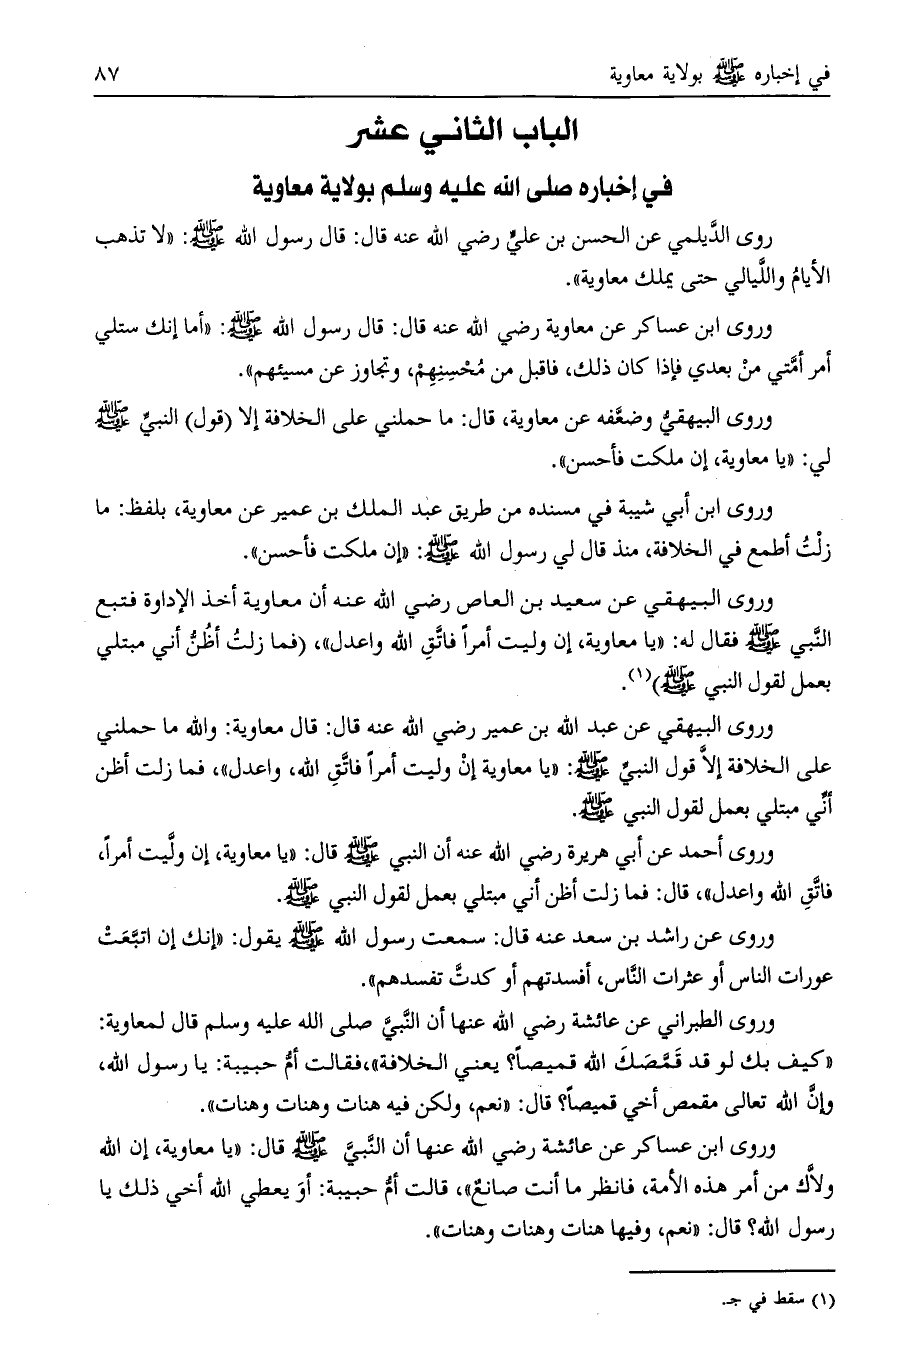 في إخباره ﷺ بولاية معاوية ٨٧
الباب الثاني عشر
في إخباره صلى الله عليه وسلم بولاية معاوية
روى الدَّيلمي عن الحسن بن عليٍّ رضي الله عنه قال: قال رسول الله ﷺ: «لا تذهب
الأيامُ واللَّيالي حتى يملك معاوية».
وروى ابن عساكر عن معاوية رضي الله عنه قال: قال رسول الله ﷺ: «أما إنك ستلي
أمر أمَّتي منْ بعدي فإذا كان ذلك، فاقبل من مُحْسِنِهِمْ، وتجاوز عن مسيئهم».
وروى البيهقيُّ وضعَّفه عن معاوية، قال: ما حملني على الخلافة إلا (قول) النبيِّ ﷺ
لي: «يا معاوية، إن ملكت فأحسن».
وروى ابن أبي شيبة في مسنده من طريق عبد الملك بن عمير عن معاوية، بلفظ: ما
زلْتُ أطمع في الخلافة، منذ قال لي رسول الله ﷺ: «إن ملكت فأحسن».
وروى البيهقي عن سعيد بن العاص رضي الله عنه أن معاوية أخذ الإداوة فتبع
النَّبي ﷺ فقال له: «يا معاوية، إن وليت أمراً فاتَّقِ الله واعدل»، (فما زلتُ أظُنُّ أني مبتلي
بعمل لقول النبي ﷺ)(١).
وروى البيهقي عن عبد الله بن عمير رضي الله عنه قال: قال معاوية: والله ما حملني
على الخلافة إلاَّ قول النبيِّ ﷺ: «يا معاوية إنْ وليت أمراً فاتَّقِ الله، واعدل»، فما زلت أظن
أنِّي مبتلي بعمل لقول النبي ﷺ.
وروى أحمد عن أبي هريرة رضي الله عنه أن النبي ﷺ قال: «يا معاوية، إن ولَّيت أمراً،
فاتَّقِ الله واعدل»، قال: فما زلت أظن أني مبتلي بعمل لقول النبي ﷺ.
وروى عن راشد بن سعد عنه قال: سمعت رسول الله ﷺ يقول: «إنك إن اتبَّعَتْ
عورات الناس أو عثرات النَّاس، أفسدتهم أو كدتَّ تفسدهم».
وروى الطبراني عن عائشة رضي الله عنها أن النَّبيَّ صلى الله عليه وسلم قال لمعاوية:
«كيف بك لو قد قَمَّصَكَ الله قميصاً؟ يعني الخلافة»،فقالت أمُّ حبيبة: يا رسول الله،
وإنَّ الله تعالى مقمص أخي قميصاً؟ قال: «نعم، ولكن فيه هنات وهنات وهنات».
وروى ابن عساكر عن عائشة رضي الله عنها أن النَّبيَّ ﷺ قال: «يا معاوية، إن الله
ولاَّك من أمر هذه الأمة، فانظر ما أنت صانعٌ»، قالت أمُّ حبيبة: أوَ يعطي الله أخي ذلك يا
رسول الله؟ قال: «نعم، وفيها هنات وهنات وهنات».
(١) سقط في جـ.